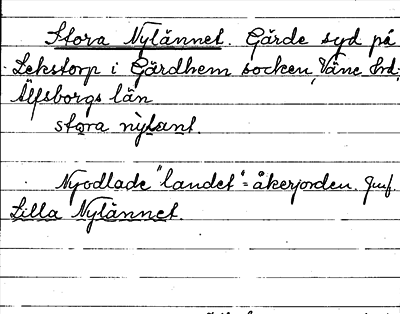 Stora Nylännet. Gärde syd på
Lekstorp i Gärdhem socken, Väne hd.,
Älfsborgs län
stora nỳlant.
Nyodlade "landet" = åkerjorden. Jmf.
Lilla Nylännet.